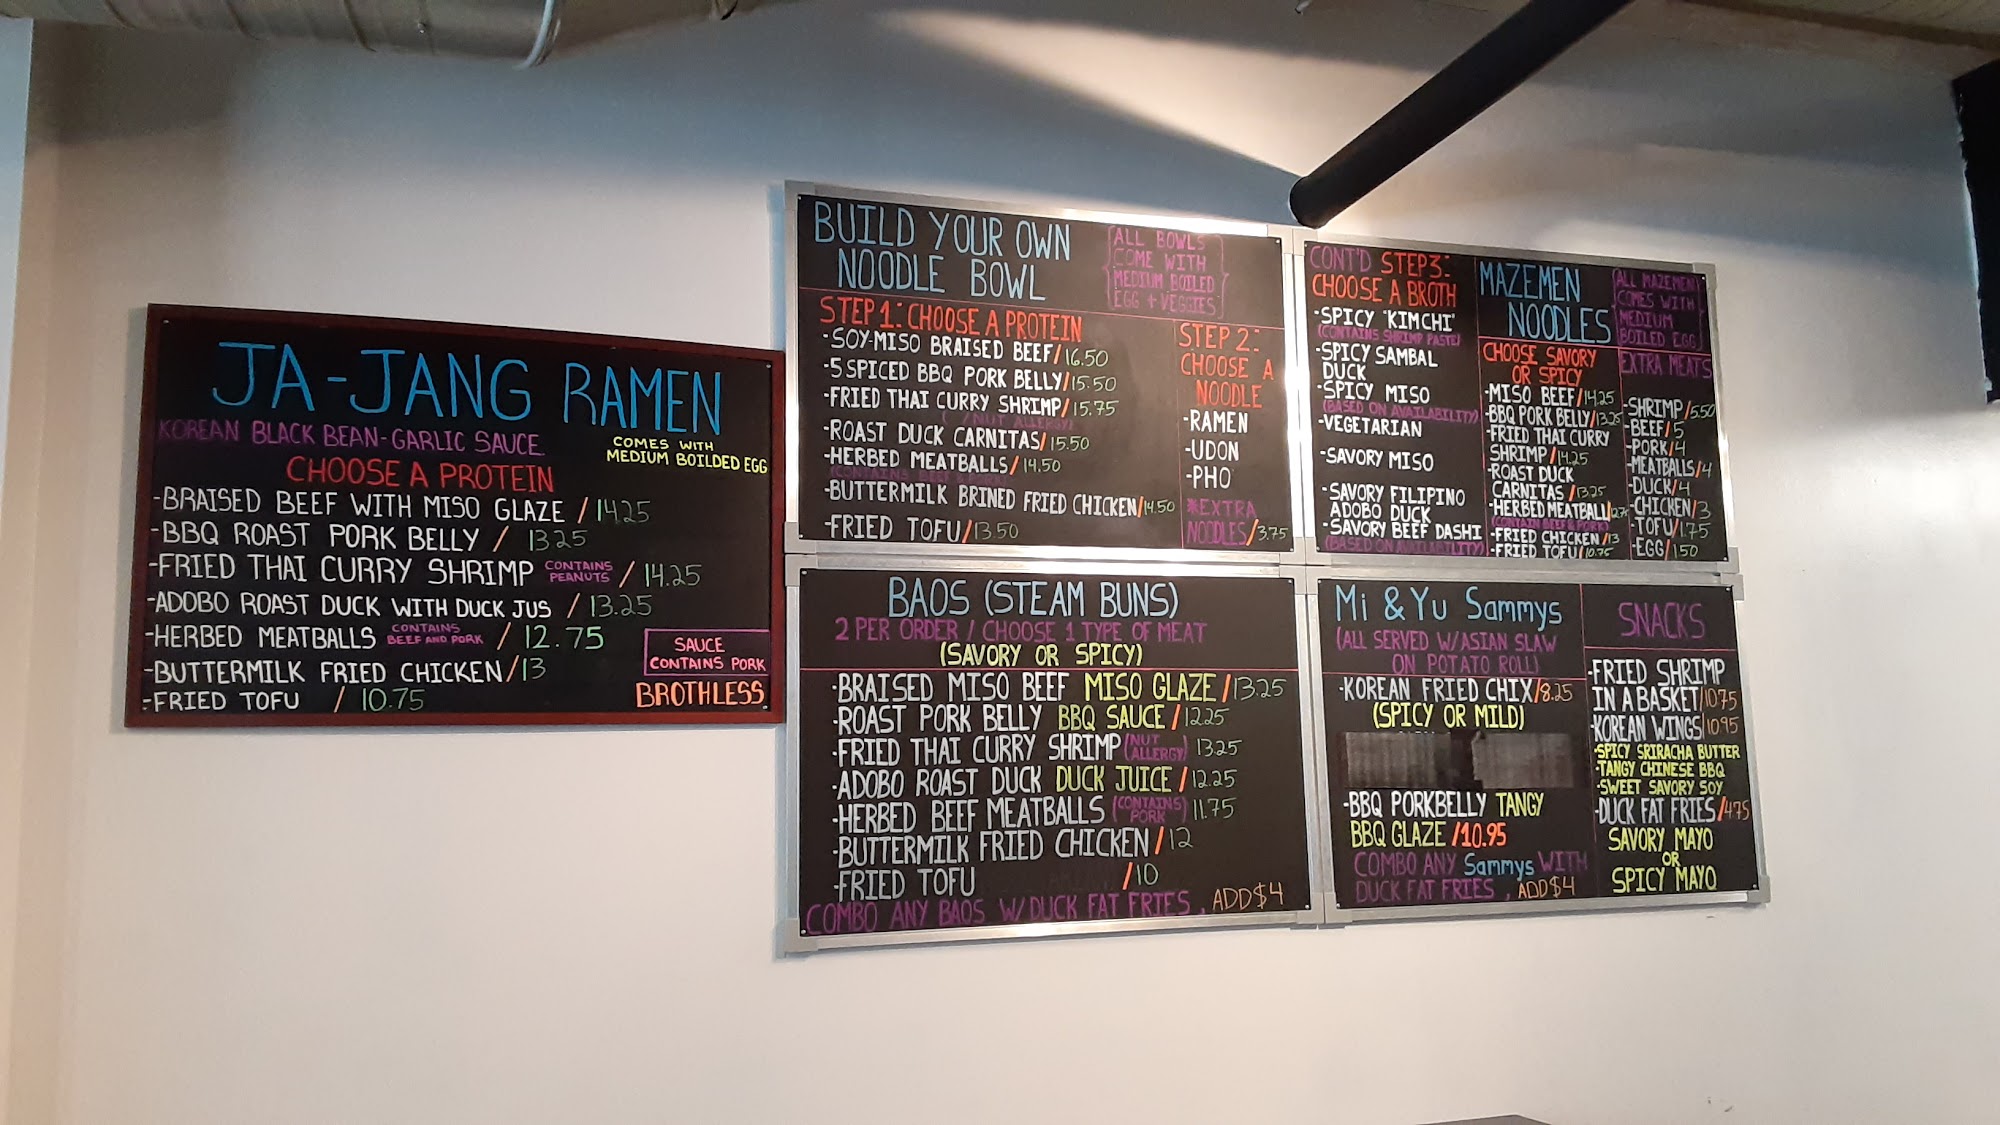 JA-JANG RAMEN
KOREAN BLACK BEAN-GARLIC SAUCE
COMES WITH
MEDIUM BOILDED EGG
CHOOSE A PROTEIN
-BRAISED BEEF WITH MISO GLAZE / 14.25
-BBQ ROAST PORK BELLY / 13.25
-FRIED THAI CURRY SHRIMP CONTAINS PEANUTS / 14.25
-ADOBO ROAST DUCK WITH DUCK JUS / 13.25
-HERBED MEATBALLS CONTAINS BEEF AND PORK / 12.75
-BUTTERMILK FRIED CHICKEN/13
-FRIED TOFU / 10.75
SAUCE
CONTAINS PORK
BROTHLESS
BUILD YOUR OWN
NOODLE BOWL
ALL BOWLS
COME WITH
MEDIUM BOILED
EGG + VEGGIES
STEP 1: CHOOSE A PROTEIN
-SOY-MISO BRAISED BEEF/16.50
-5 SPICED BBQ PORK BELLY/15.50
-FRIED THAI CURRY SHRIMP/15.75
(NUT ALLERGY)
-ROAST DUCK CARNITAS/15.50
-HERBED MEATBALLS/14.50
(CONTAINS BEEF & PORK)
-BUTTERMILK BRINED FRIED CHICKEN/14.50
-FRIED TOFU/13.50
STEP 2:
CHOOSE A
NOODLE
-RAMEN
-UDON
-PHO
*EXTRA
NOODLES/3.75
CONT'D STEP3:
CHOOSE A BROTH
-SPICY "KIMCHI"
(CONTAINS SHRIMP PASTE)
-SPICY SAMBAL
DUCK
-SPICY MISO
(BASED ON AVAILABILITY)
-VEGETARIAN
-SAVORY MISO
-SAVORY FILIPINO
ADOBO DUCK
-SAVORY BEEF DASHI
(BASED ON AVAILABILITY)
MAZEMEN
NOODLES
ALL MAZEMEN
COMES WITH
MEDIUM
BOILED EGG
CHOOSE SAVORY
OR SPICY
-MISO BEEF/14.25
-BBQ PORK BELLY/13.25
-FRIED THAI CURRY
SHRIMP/14.25
-ROAST DUCK
CARNITAS/13.25
-HERBED MEATBALL/12.75
(CONTAIN BEEF & PORK)
-FRIED CHICKEN/13
-FRIED TOFU/10.75
EXTRA MEATS
-SHRIMP/5.50
-BEEF/5
-PORK/4
-MEATBALLS/4
-DUCK/4
-CHICKEN/3
-TOFU/1.75
-EGG/1.50
BAOS (STEAM BUNS)
2 PER ORDER / CHOOSE 1 TYPE OF MEAT
(SAVORY OR SPICY)
-BRAISED MISO BEEF MISO GLAZE/13.25
-ROAST PORK BELLY BBQ SAUCE/12.25
-FRIED THAI CURRY SHRIMP (NUT ALLERGY) 13.25
-ADOBO ROAST DUCK DUCK JUICE/12.25
-HERBED BEEF MEATBALLS (CONTAINS PORK) 11.75
-BUTTERMILK FRIED CHICKEN/12
-FRIED TOFU /10
COMBO ANY BAOS W/DUCK FAT FRIES, ADD $4
Mi & Yu Sammys
(ALL SERVED W/ASIAN SLAW
ON POTATO ROLL)
-KOREAN FRIED CHIX/8.25
(SPICY OR MILD)
-BBQ PORKBELLY TANGY
BBQ GLAZE /10.95
COMBO ANY Sammys WITH
DUCK FAT FRIES, ADD $4
SNACKS
-FRIED SHRIMP
IN A BASKET/10.75
-KOREAN WINGS/10.95
-SPICY SRIRACHA BUTTER
-TANGY CHINESE BBQ
-SWEET SAVORY SOY
-DUCK FAT FRIES/4.75
SAVORY MAYO
OR
SPICY MAYO